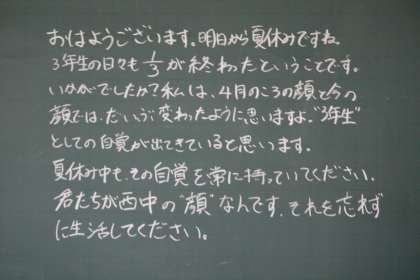 おはようございます。明日から夏休みですね。
3年生の日々も1/3が終わったということです。
いかがでしたか?私は、4月のころの顔と今の
顔では、だいぶ変わったように思いますよ。"3年生"
としての自覚が出てきていると思います。
夏休み中も、その自覚を常に持っていてください。
君たちが西中の"顔"なんです。それを忘れず
に生活してください。